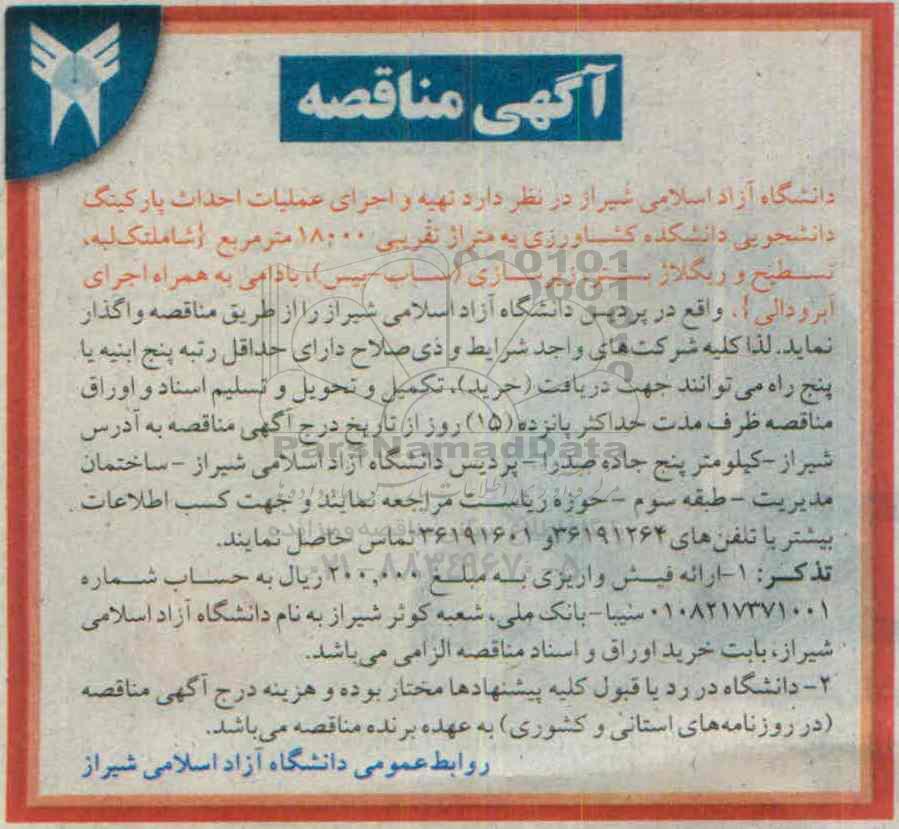 آگهی مناقصه
دانشگاه آزاد اسلامی شیراز در نظر دارد تهیه و اجرای عملیات احداث پارکینگ
دانشجویی دانشکده کشاورزی به متراژ تقریبی ۱۸۰۰۰ مترمربع {شامل‌تک‌لبه،
تسطیح و ریگلاژ بستر، زیرسازی (ساب-بیس)، بادامی به همراه اجرای
آبرو دالی}، واقع در پردیس دانشگاه آزاد اسلامی شیراز را از طریق مناقصه واگذار
نماید. لذا کلیه شرکت‌های واجد شرایط و ذی‌صلاح دارای حداقل رتبه پنج ابنیه یا
پنج راه می‌توانند جهت دریافت (خرید)، تکمیل و تحویل و تسلیم اسناد و اوراق
مناقصه ظرف مدت حداکثر پانزده (۱۵) روز از تاریخ درج آگهی مناقصه به آدرس
شیراز-کیلومتر پنج جاده صدرا - پردیس دانشگاه آزاد اسلامی شیراز - ساختمان
مدیریت - طبقه سوم - حوزه ریاست مراجعه نمایند و جهت کسب اطلاعات
بیشتر با تلفن‌های ۳۶۱۹۱۲۶۴ و ۳۶۱۹۱۶۰۱ تماس حاصل نمایند.
تذکر: ۱-ارائه فیش واریزی به مبلغ ۲۰۰,۰۰۰ ریال به حساب شماره
۰۱۰۸۲۱۷۳۷۱۰۰۱ سیبا-بانک ملی، شعبه کوثر شیراز به نام دانشگاه آزاد اسلامی
شیراز، بابت خرید اوراق و اسناد مناقصه الزامی می‌باشد.
۲- دانشگاه در رد یا قبول کلیه پیشنهادها مختار بوده و هزینه درج آگهی مناقصه
(در روزنامه‌های استانی و کشوری) به عهده برنده مناقصه می‌باشد.
روابط عمومی دانشگاه آزاد اسلامی شیراز
ParsNamadData
۰۲۱-۸۸۳۴۹۶۷۰-۵